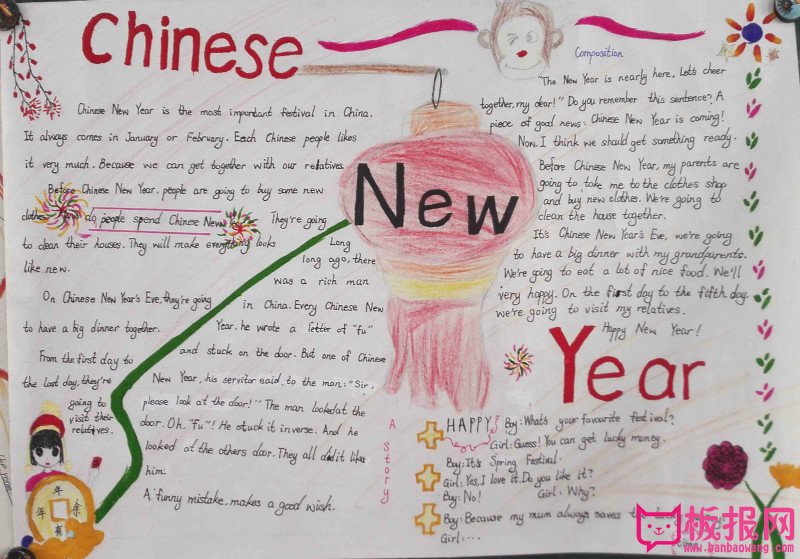 Chinese
New
Year
Chinese New Year is the most important festival in China.
It always comes in January or February. Each Chinese people likes
it very much. Because we can get together with our relatives.
Before Chinese New Year, people are going to buy some new
clothes. do people spend Chinese New They're going
to clean their houses. They will make everything looks
like new.
On Chinese New Year's Eve, they're going
to have a big dinner together.
From the first day to
the last day, they're
going to
visit their
relatives.
A story
Long
long ago, there
was a rich man
in China. Every Chinese New
Year, he wrote a letter of "fu"
and stuck on the door. But one of Chinese
New Year, his servitor said to the man: "Sir,
please look at the door!" The man looked at the
door. Oh, "fu"! He stuck it inverse. And he
looked at the others door. They all did it like
him.
A funny mistake, makes a good wish.
Composition
"The New Year is nearly here, Let's cheer
together, my dear!" Do you remember this sentence? A
piece of good news: Chinese New Year is coming!
Now, I think we should get something ready.
Before Chinese New Year, my parents are
going to take me to the clothes shop
and buy new clothes. We're going to
clean the house together.
It's Chinese New Year's Eve, we're going
to have a big dinner with my grandparents.
We're going to eat a lot of nice food. We'll
very happy. On the first day to the fifth day
we're going to visit my relatives.
Happy New Year!
HAPPY
Boy: What's your favourite festival?
Girl: Guess! You can get lucky money.
Boy: It's Spring Festival.
Girl: Yes, I love it. Do you like it?
Boy: No! Girl: Why?
Boy: Because my mum always saves
Girl: ...
年年有余
板报网
www.banbaowang.com